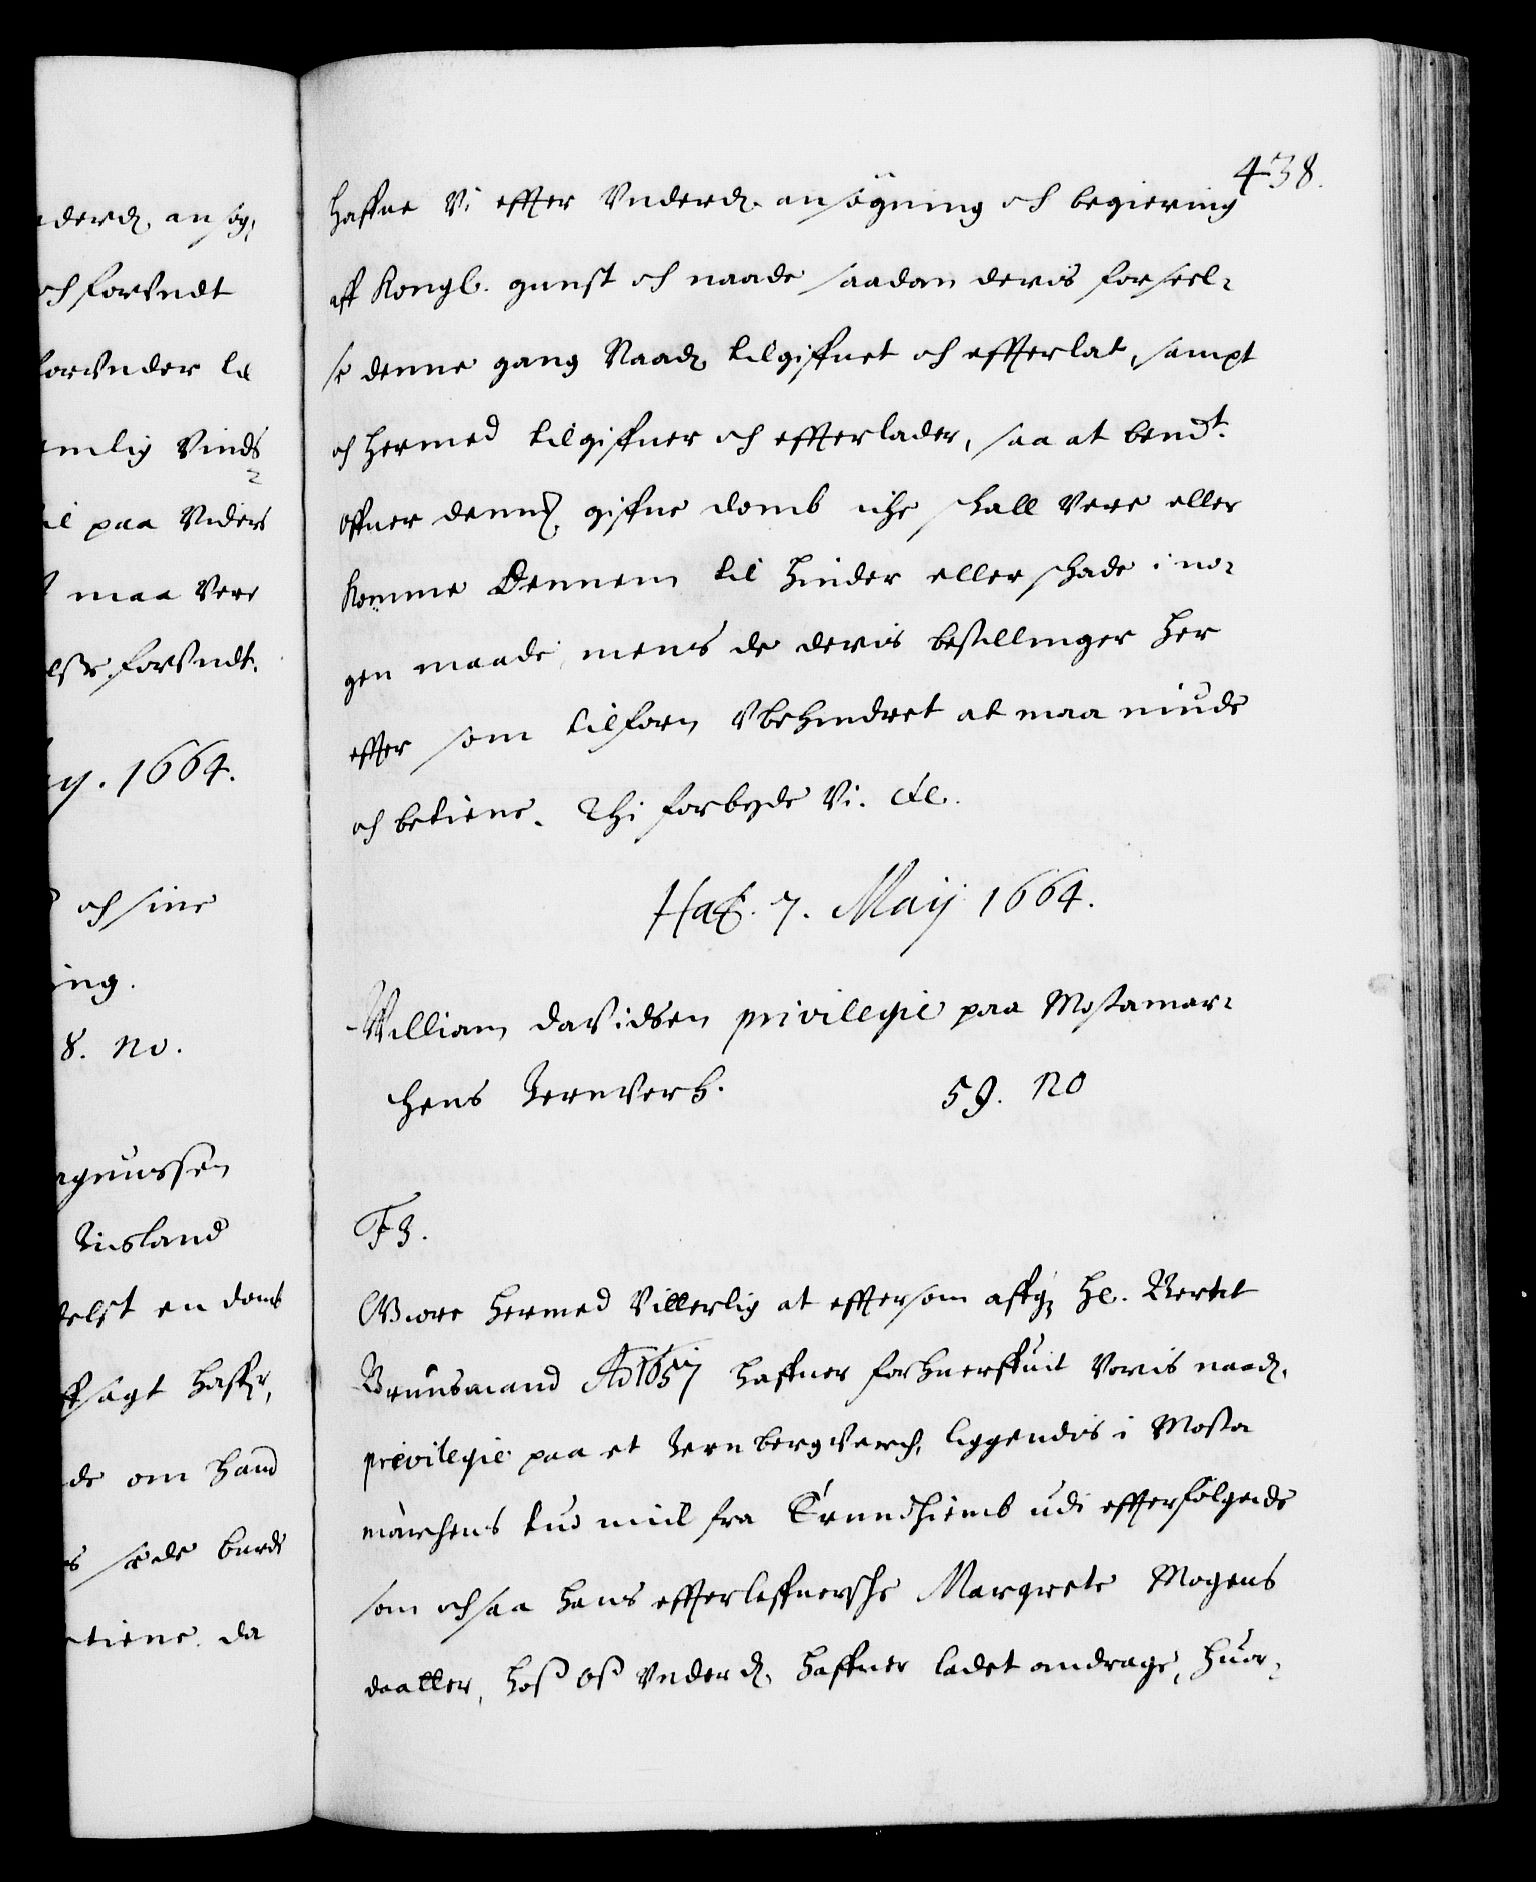 derd. an søg,
och forundt
forunder le
emlig Vinds
il paa Viders
maa Vere
else forundt.
y. 1664.
och sine
ing.
8. No.
agnussen
Iisland
delst en domb
ffsagt haffr,
de om hand
s sæde burde
etiene. da
438.
haffue Vi effter Vnderd. ansøgning och begiering
aff Kongl. gunst och naade saadan deris forseel-
se denne gang Naad. tilgiffuet och effterlat, sampt
och hermed tilgiffuer och effterlader, saa at bemt.
offuer dennem giffne domb iche schall Vere eller
Komme Dennem til hinder eller schade i no-
gen maade, mens de deris bestillinger her
effter som tilforn Vbehindret at maa niude
och betiene. Thi forbyde Vi. etc.
Haf. 7. Maij 1664.
William Davidsen privilegie paa Mostamar-
chens Iernverch. 59. No
F3.
Giøre hermed Vitterlig at effter som affg. He. Bertel
Brunsmand Ao 1657 haffuer forhuerffuit Voris naad.
privilegie paa et Iern bergverch, liggendis i Mosta
marchens tuo miil fra Trundhiemb udi effterfølgende
som och saa hans effterleffuersche Margrete Mogens
daatter, hoss oss Vnderd. haffuer ladet andrage, huor-